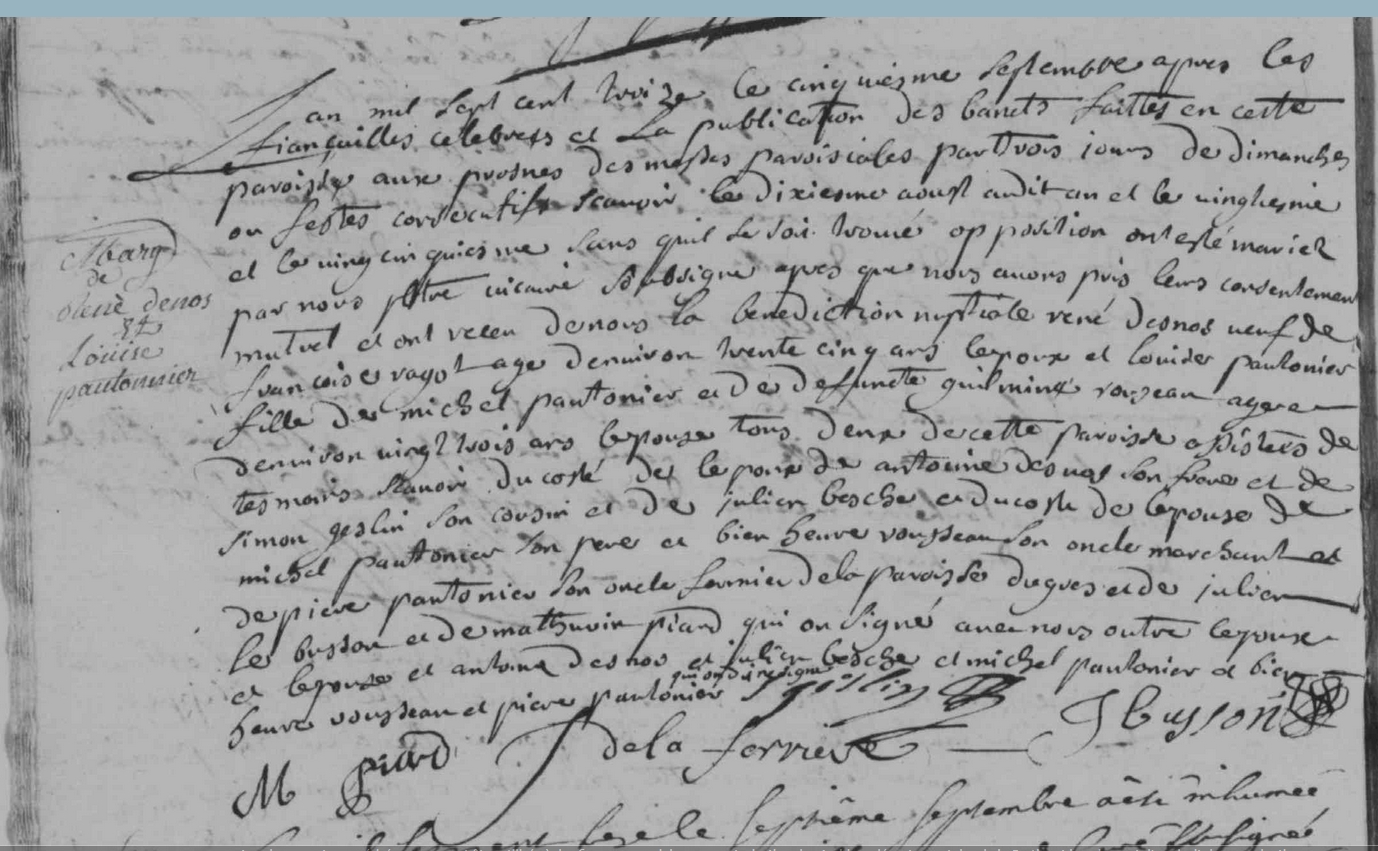 Mariage
de
René denos
&
Louise
pautonnier
Lan mil sept cent treize le cinquiesme septembre apres les
fiançailles celebrees et La publication des bancts faittes en cette
paroisse aux prosnes des messes paroissiales par trois jours de dimanches
ou festes consecutifs scauoir le dixiesme aoust audit an et le vingtiesme
et le vingt cinquiesme sans quil se soit trouué opposition ont esté mariez
par nous pbtre vicaire soubsigne apres que nous auons pris leurs consentement
mutuel et ont receu de nous la benediction nuptiale rené desnos veuf de
francoise ragot age denuiron trente cinq ans lepoux et louise pautonier
fille de michel pautonier et de defuncte guilmine rousseau agee
denuiron vingt trois ans lepouse tous deux de cette paroisse assistes de
tesmoins scauoir du costé de lepoux de antoine desnos son frere et de
simon geslin son cousin et de julien besche et du coste de lepouse de
michel pautonier son pere et bien heure rousseau son oncle marchant et
de piere pautonier son oncle fermier de la paroisse de gres et de julien
le busson et de mathurin piard qui on signé auec nous outre lepoux
et lepouse et antoine desnos et julien besche et michel pautonier et bien
heure rousseau et piere pautonier
qui on dit ne signe
geslin
J busson
M piard
de la ferriere
le septiême septembre a êté inhumée